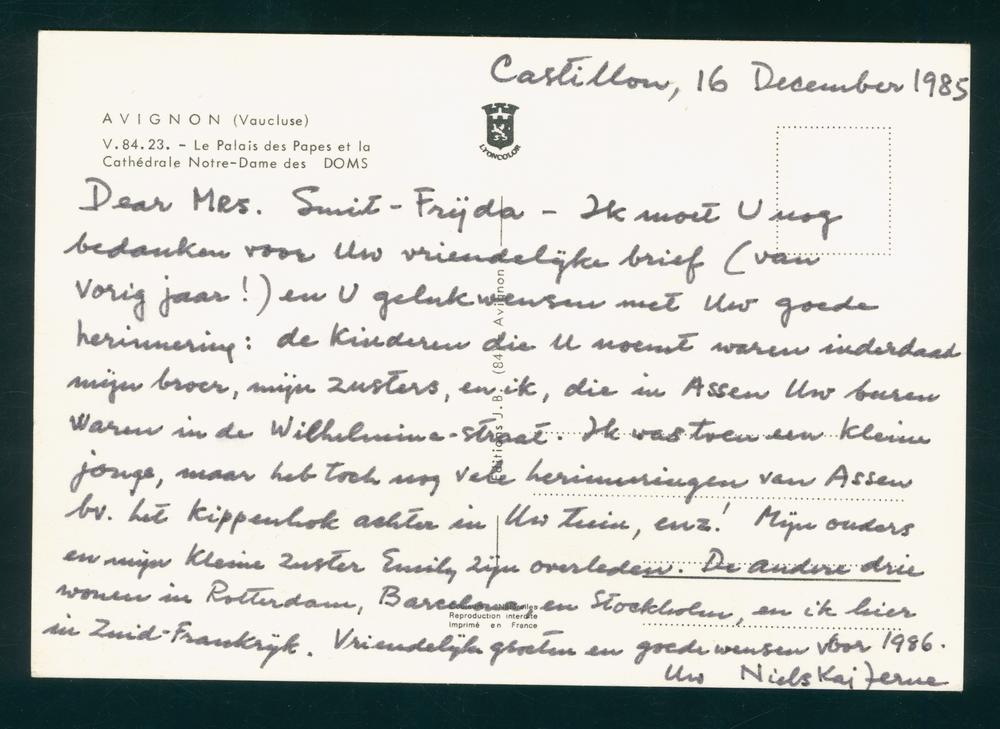 Castillon, 16 December 1985
AVIGNON (Vaucluse)
V.84.23. – Le Palais des Papes et la
Cathédrale Notre-Dame des DOMS
LYONCOLOR
Dear Mrs. Smit-Frijda – Ik moet U nog
bedanken voor Uw vriendelijke brief (van
vorig jaar!) en U gelukwensen met Uw goede
herinnering: de Kinderen die U noemt waren inderdaad
mijn broer, mijn zusters, en ik, die in Assen Uw buren
waren in de Wilhelmina-straat. Ik was toen een kleine
jonge, maar heb toch nog vele herinneringen van Assen
bv. het Kippenhok achter in Uw tuin, enz! Mijn ouders
en mijn kleine zuster Emily zijn overleden. De andere drie
wonen in Rotterdam, Barcelona, en Stockholm, en ik hier
in Zuid-Frankrijk. Vriendelijke groeten en goede wensen voor 1986.
Uw Niels Kaj Jerne
Editions J.B. (84) Avignon
Reproduction interdite
Imprimé en France